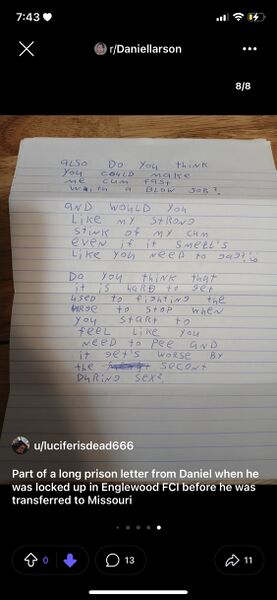 7:43
r/Daniellarson
8/8
also Do you think
you could make
me cum fast
With a Blow Job?
and would you
Like my strong
stink of my cum
even if it smell's
Like you need to gag?
Do you think that
it is hard to get
used to fighting the
urge to stop when
you start to
feel like you
need to pee and
it get's worse by
the second
During sex?
u/luciferisdead666
Part of a long prison letter from Daniel when he
was locked up in Englewood FCI before he was
transferred to Missouri
0
13
11